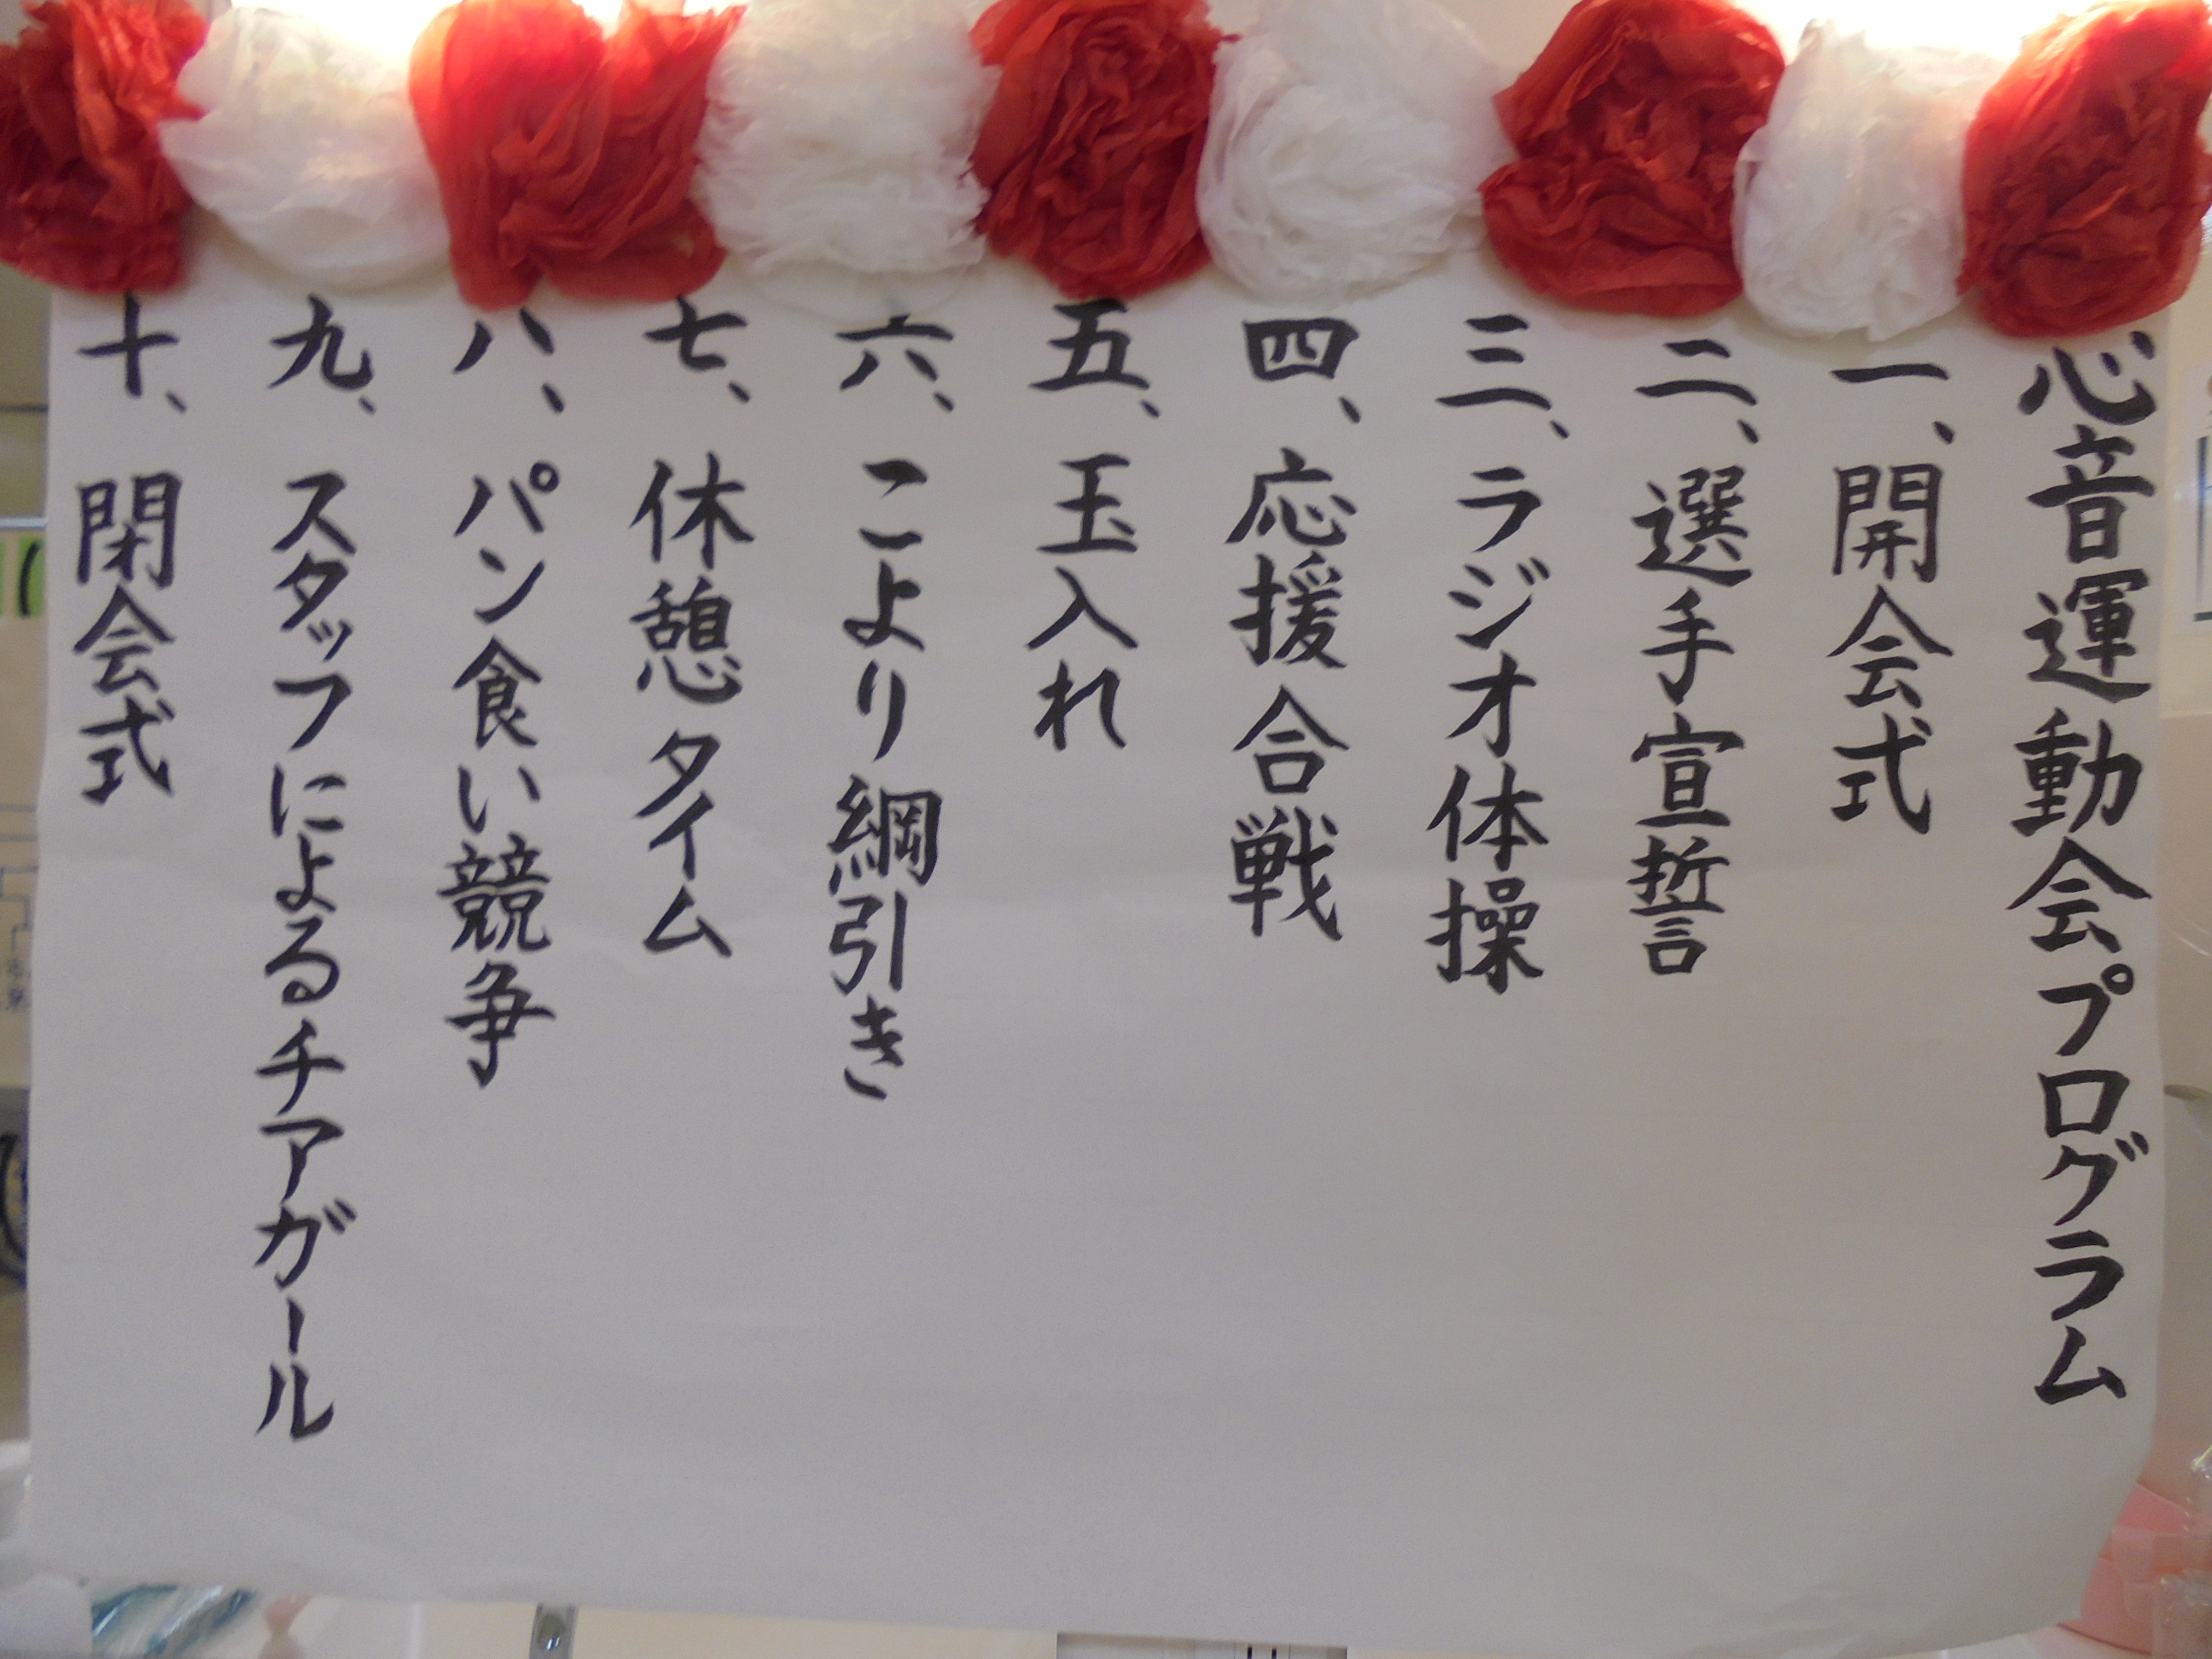 心音運動会プログラム
一、開会式
二、選手宣誓
三、ラジオ体操
四、応援合戦
五、玉入れ
六、こより綱引き
七、休憩タイム
八、パン食い競争
九、スタッフによるチアガール
十、閉会式